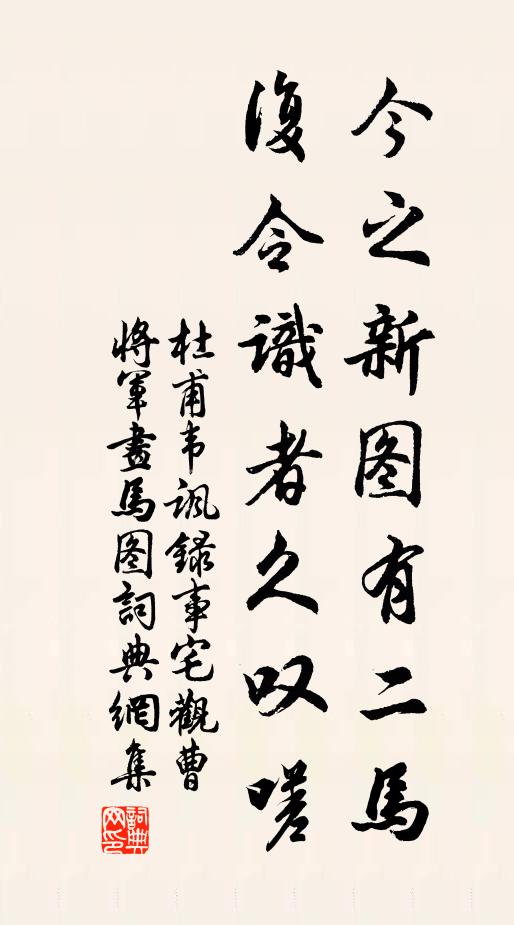 今之新图有二馬
復令識者久叹嗟
杜甫韦諷錄事宅觀曹
將軍畫馬图詞典網集
詞典网印